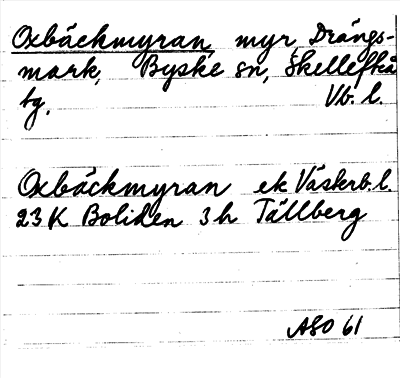 Oxbäckmyran, myr, Drängs-
mark, Byske sn, Skellefteå
tg. Vb. l.
Oxbäckmyran ek Västerb. l.
23 K Boliden 3 h Tällberg
ASO 61